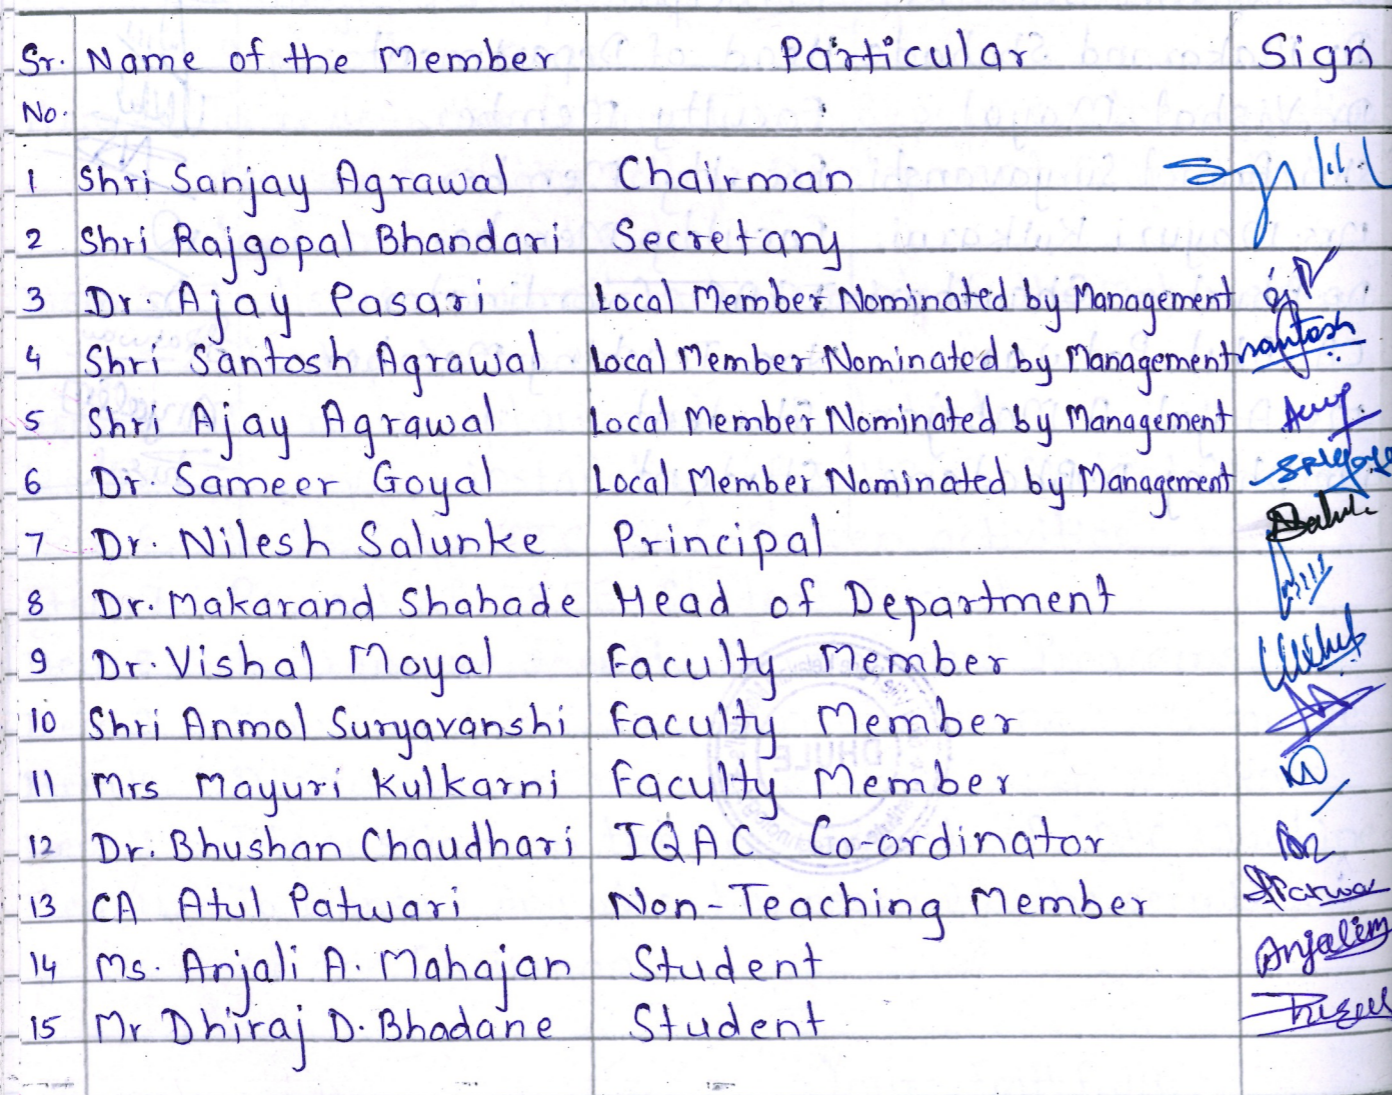 Sr. Name of the Member Particular Sign
No.
1 Shri Sanjay Agrawal Chairman
2 Shri Rajgopal Bhandari Secretary
3 Dr. Ajay Pasari Local Member Nominated by Management
4 Shri Santosh Agrawal Local Member Nominated by Management Santosh
5 Shri Ajay Agrawal Local Member Nominated by Management
6 Dr. Sameer Goyal Local Member Nominated by Management
7 Dr. Nilesh Salunke Principal
8 Dr. Makarand Shahade Head of Department
9 Dr. Vishal Moyal Faculty Member
10 Shri Anmol Suryavanshi Faculty Member
11 Mrs Mayuri Kulkarni Faculty Member
12 Dr. Bhushan Chaudhari IQAC Co-ordinator
13 CA Atul Patwari Non-Teaching Member
14 Ms. Anjali A. Mahajan Student Anjalim
15 Mr Dhiraj D. Bhadane Student